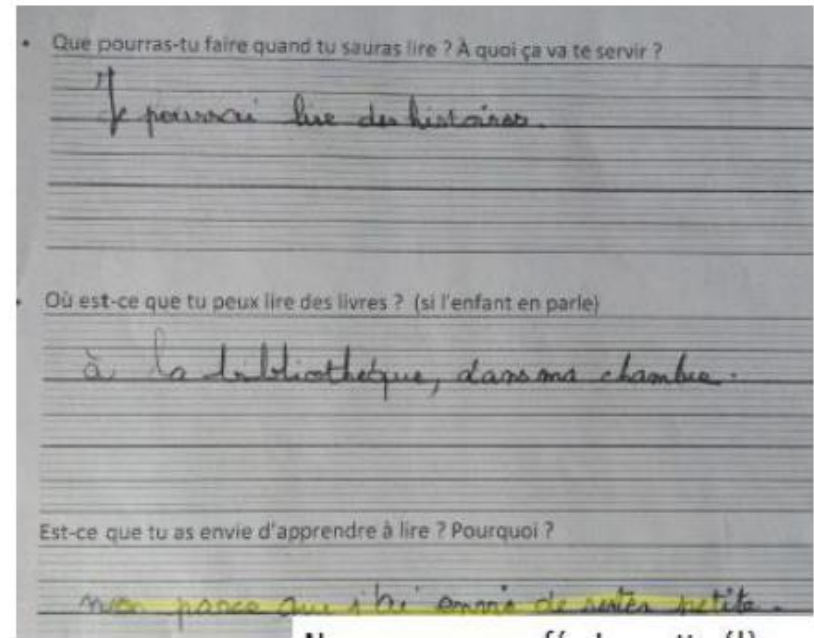 • Que pourras-tu faire quand tu sauras lire ? À quoi ça va te servir ?
Je pourrai lire des histoires.
• Où est-ce que tu peux lire des livres ? (si l'enfant en parle)
à la bibliothèque, dans ma chambre.
Est-ce que tu as envie d'apprendre à lire ? Pourquoi ?
non parce que de rester petite.